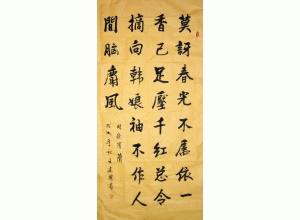 莫訝春光不屬侬一
香已足壓千紅总令
摘向韓娘袖不作人
間腦麝風